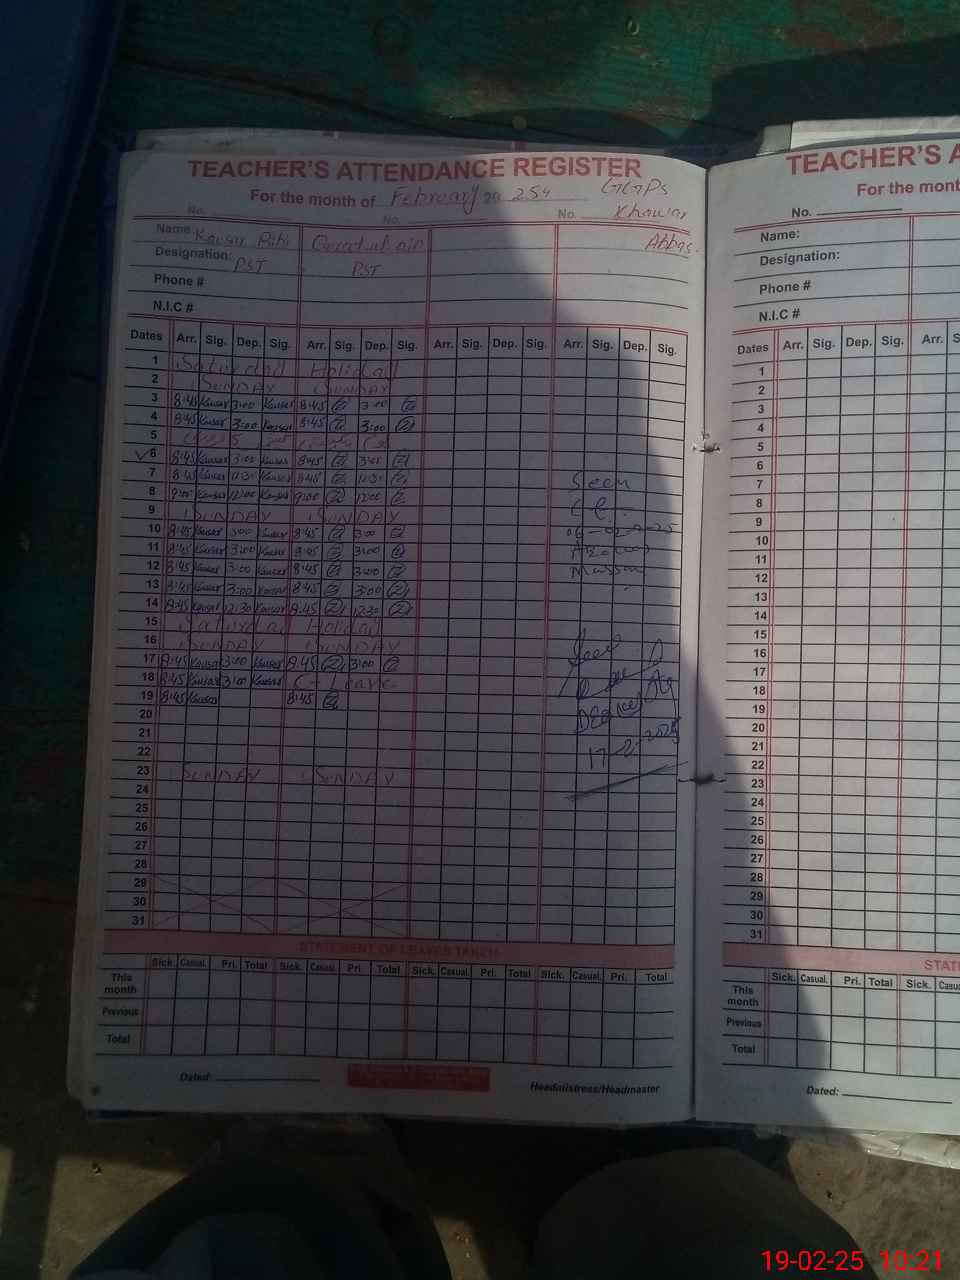 TEACHER'S ATTENDANCE REGISTER
For the month of February 20 25
GGPS
No. No. No. Khowar
Name: Kausar Bibi Abbas.
Designation: PST PST
Phone #
N.I.C #
Dates Arr. Sig. Dep. Sig. Arr. Sig. Dep. Sig. Arr. Sig. Dep. Sig. Arr. Sig. Dep. Sig.
1 Saturday Holiday
2 SUNDAY SUNDAY
3 8:45 Kausar 3:00 Kausar 8:45 3:00
4 8:45 Kausar 3:00 Kausar 8:45 3:00
5
6 8:45 Kausar 3:00 Kausar 8:45 3:00
7 8:45 Kausar 12:30 Kausar 8:45 12:30 Seen
8 9:00 Kausar 12:00 Kausar 9:00 12:00
9 SUNDAY SUNDAY
10 8:45 Kausar 3:00 Kausar 8:45 3:00 06-02-2025
11 8:45 Kausar 3:00 Kausar 8:45 3:00
12 8:45 Kausar 3:00 Kausar 8:45 3:00
13 8:45 Kausar 3:00 Kausar 8:45 3:00
14 8:45 Kausar 12:30 Kausar 8:45 12:30
15 Saturday Holiday
16 SUNDAY SUNDAY
17 8:45 Kausar 3:00 Kausar 8:45 3:00 Seen
18 8:45 Kausar 3:00 Kausar C-Leave
19 8:45 Kausar 8:45
20
21
22 17-2-2025
23 SUNDAY SUNDAY
24
25
26
27
28
29
30
31
STATEMENT OF LEAVES TAKEN
Sick. Casual. Pri. Total Sick. Casual. Pri. Total Sick. Casual. Pri. Total Sick. Casual. Pri. Total
This month
Previous
Total
Dated: Headmistress/Headmaster
TEACHER'S A
For the mont
No.
Name:
Designation:
Phone #
N.I.C #
Dates Arr. Sig. Dep. Sig. Arr. S
1
2
3
4
5
6
7
8
9
10
11
12
13
14
15
16
17
18
19
20
21
22
23
24
25
26
27
28
29
30
31
STATE
Sick. Casual. Pri. Total Sick. Casu
This month
Previous
Total
Dated:
19-02-25 10:21